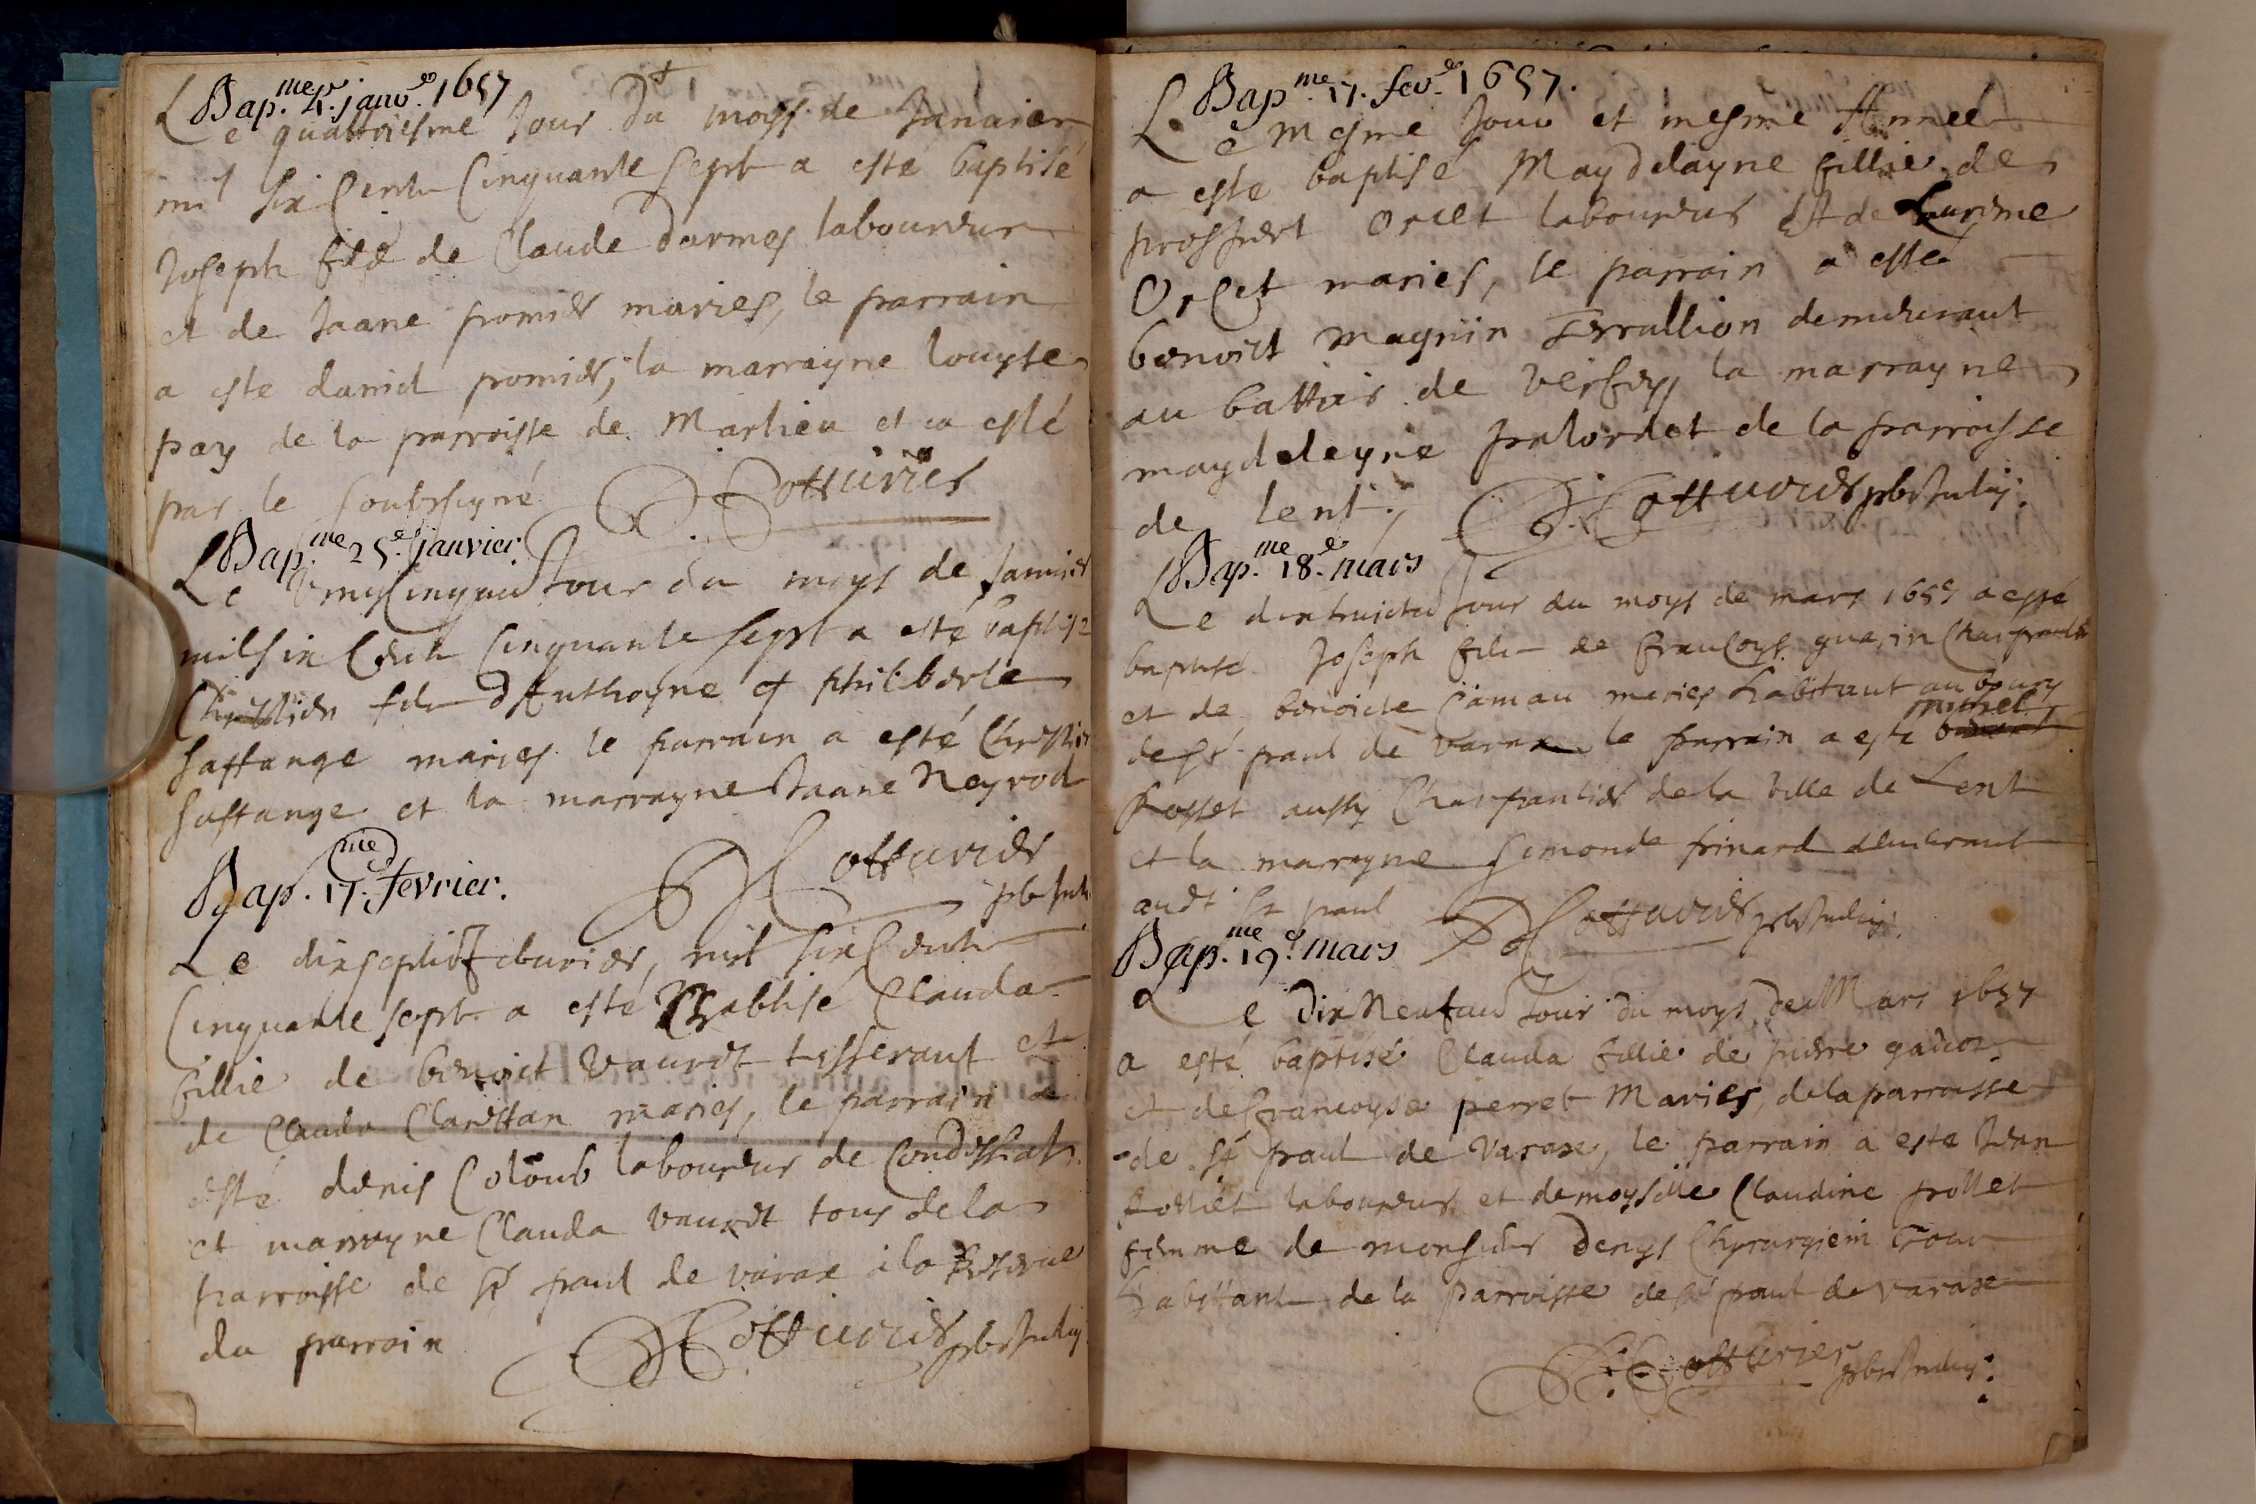 Bap.me 4.e janv. 1657
Le quattriesme Jour du moys de Janvier
mil six Cents Cinquante sept a esté baptisé
Joseph filz de Claude darmes laboureur
et de Jaane promier mariés, le parrain
a este daniel promier, la marrayne louyse
pay de la parroisse de Marlieu et a esté
par le soubsigné Cotturier
Bap.me 25.e janvier
Le Jour du moys de Janvier
mil six Cents Cinquante sept a esté baptise
Chrestien filz d'Anthoyne et philiberte
saffange mariés le parrain a esté Chrestien
saffange et la marrayne Jaane Neyrod
Bap.me 17. fevrier.
Cotturier
pbr
Le dixseptie febvrier, mil six Cents
Cinquante sept a esté Baptisé Clauda
fillie de benoict Vauret tisserant et
de Clauda mariés, le parrain a
esté denis Colomb laboureur de Condessiat
et marrayne Clauda Vauret tous de la
parroisse de St paul de varax a la Reserve
du parrain Cotturier pbr
Bap.me 17. fev.e 1657.
Le Mesme Jour et mesme Année
a esté baptisé Maydelayne fillie de
prospert Orcet laboureur Et de
Orcet mariés, le parrain a esté
benoict Magnin demeurant
au battoir de Versey, la marrayne
maydeleyne de la parroisse
de lent. Cotturier pbr
Bap.me 18.e mars
Le dixhuictie Jour du moys de mars 1657 a esté
baptisé Joseph filz de Francoys guerin Charpantier
et de benoicte Camau mariés habitant au bourg
de St paul de varax le parrain a esté
Rosset aussy Charpantier de la ville de Lent
et la marrayne Simonde pinard demeurant
audt St paul Cotturier pbr
Bap.me 19.e mars
Le Dix Neufvie Jour du moys de Mars 1657
a esté baptisé Clauda fillie de pierre
et de francoyse perret Mariés, de la parroisse
de St paul de Varax, le parrain a este Jean
laboureur et demoyselle Claudine pollet
femme de monsieur Denys Chyrurgiein
habittant de la parroisse de St paul de varax
Cotturier pbr